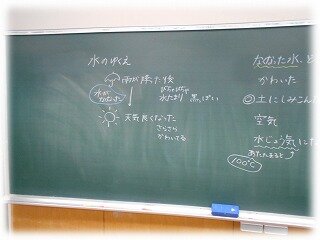 水のゆくえ
雨が降った後
びちゃびちゃ
水たまり 黒っぽい
水が
かわいた
天気良くなった
さらさら
かわいてる
かわいた水、と
かわいた
土にしみこん
空気
水じょう気にな
あたためると
100℃